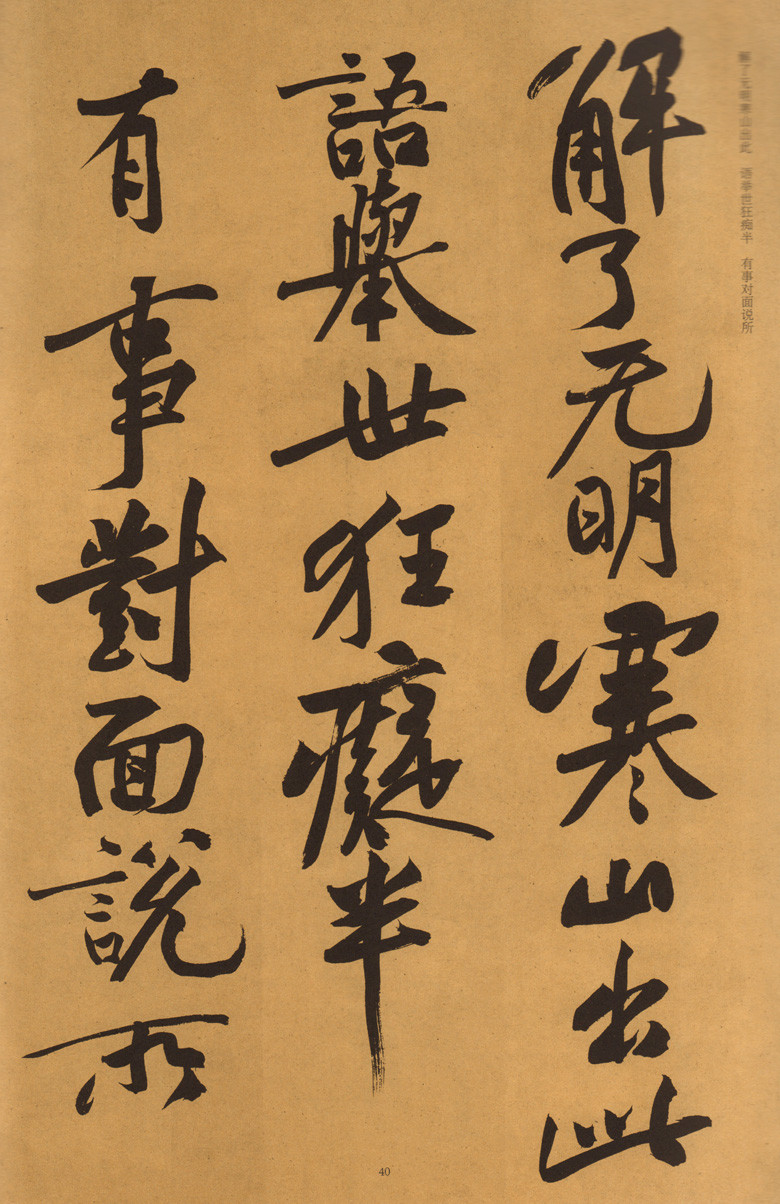 解了无明寒山出此 语举世狂痴半 有事对面说所
解了无明寒山出此
語舉世狂癡半
有事對面說所
40